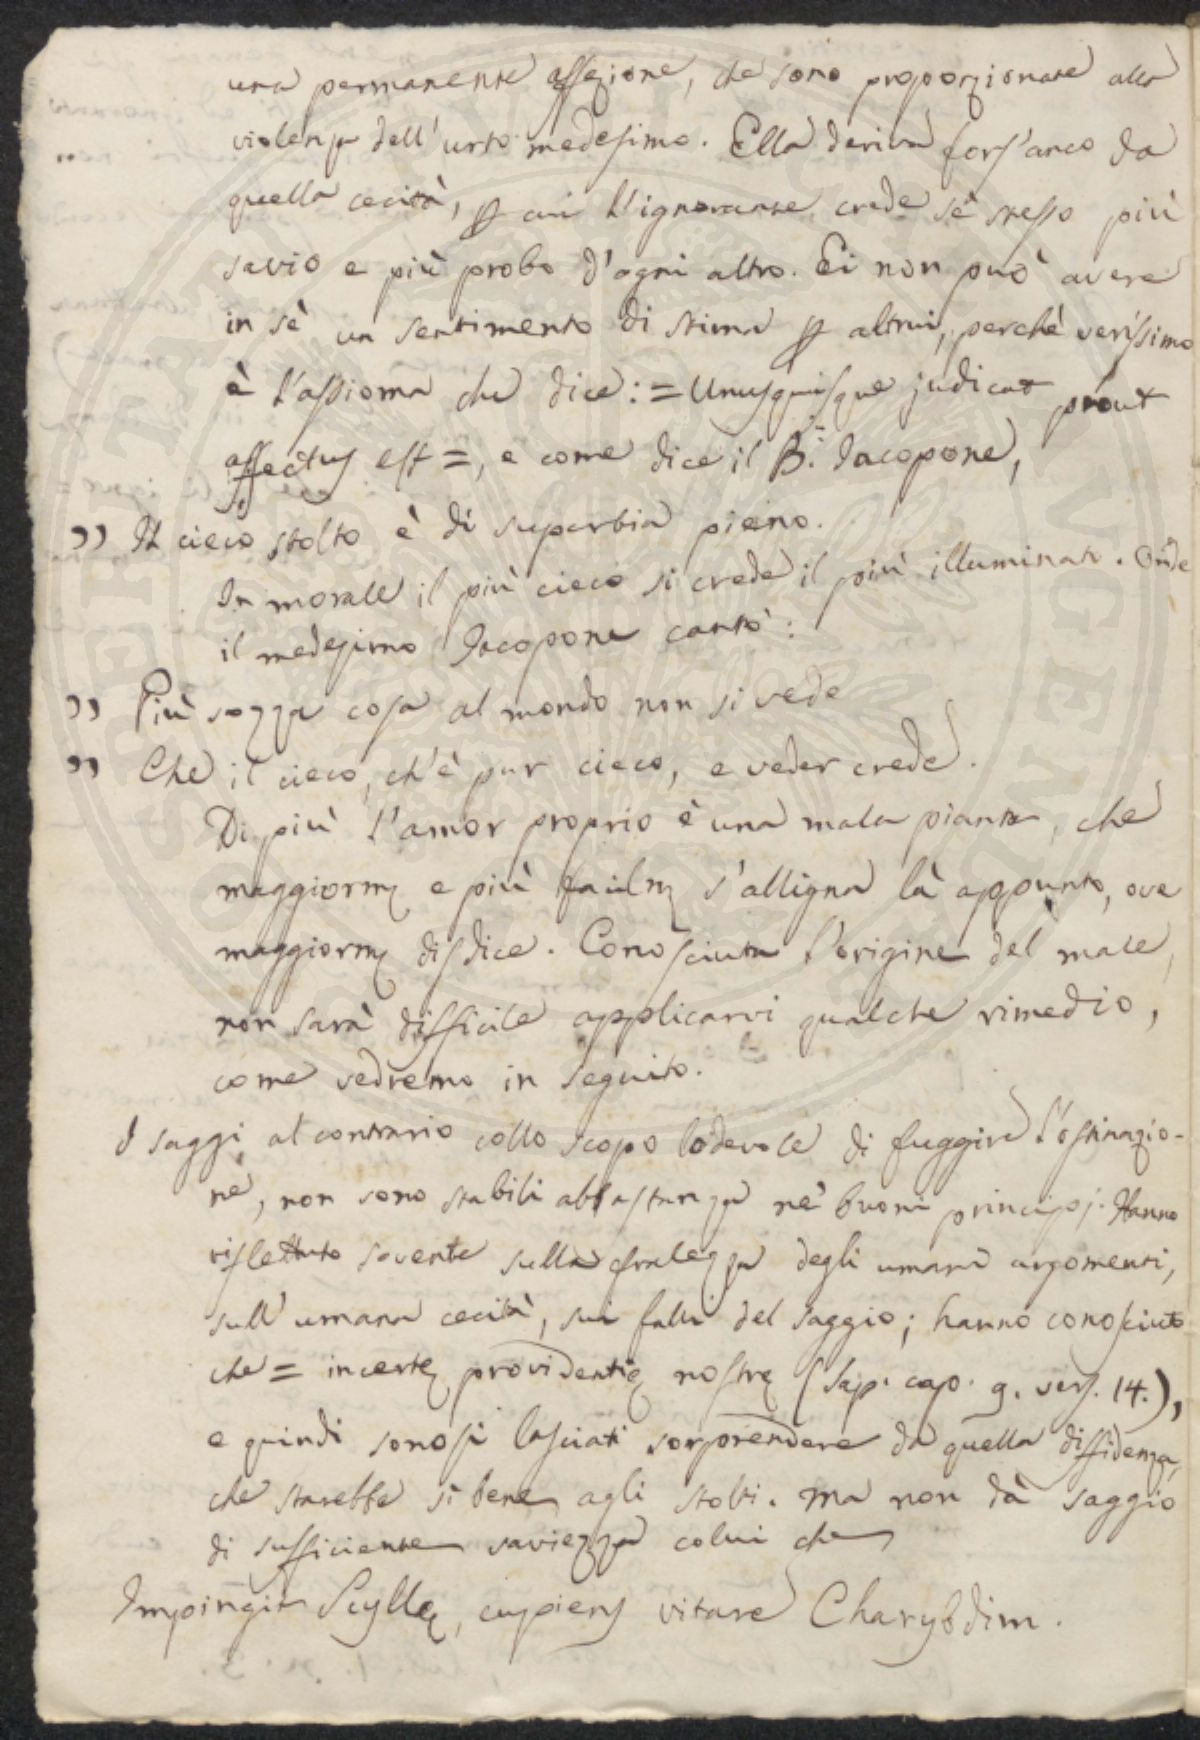 una permanente affezione, che sono proporzionate alla
violenza dell'urto medesimo. Ella deriva fors'anco da
quella cecità, p cui l'ignorante crede sè stesso più
savio e più probo d'ogni altro. Ei non può avere
in sè un sentimento di stima p altrui, perchè verissimo
è l'assioma che dice: = Unusquisque judicat prout
affectus est =, e come dice il B. Jacopone,
,, Il cieco stolto è di superbia pieno.
In morale il più cieco si crede il più illuminato. Onde
il medesimo Jacopone cantò:
,, Più sozza cosa al mondo non si vede
,, Che il cieco, ch'è pur cieco, e veder crede.
Di più l'amor proprio è una mala pianta, che
maggiorm e più facilm s'alligna là appunto, ove
maggiorm disdice. Conosciuta l'origine del male,
non sarà difficile applicarvi qualche rimedio,
come vedremo in seguito.
I saggi al contrario collo scopo lodevole di fuggire l'ostinazio-
ne, non sono stabili abbastanza ne' buoni principj. Hanno
riflettuto sovente sulla fralezza degli umani argomenti,
sull'umana cecità, sui falli del saggio; hanno conosciuto
che = incertę providentię nostrę (Sap. cap. 9. vers. 14.),
e quindi sonosi lasciati sorprendere da quella diffidenza,
che starebbe sì bene agli stolti. Ma non dà saggio
di sufficiente saviezza colui che
Impingit Scyllę, cupiens vitare Charybdim.